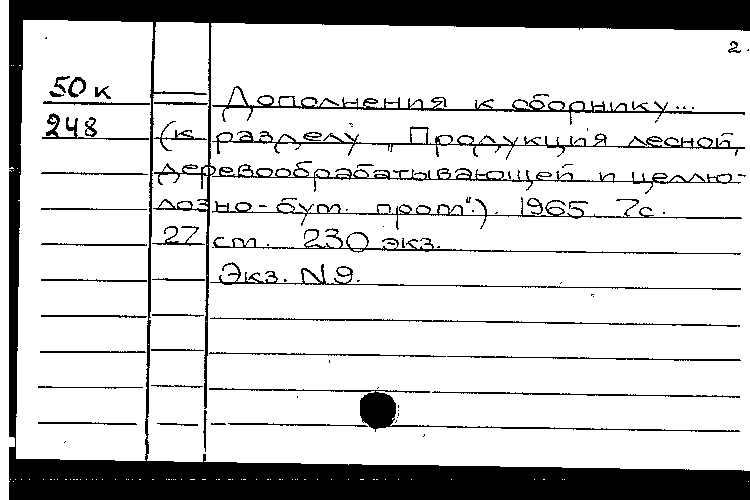 2.
50к Дополнения к сборнику...
248 (к разделу „Продукция лесной,
деревообрабатывающей и целлю-
лозно-бум. пром".). 1965. 7с.
27 см. 230 экз.
Экз. N9.